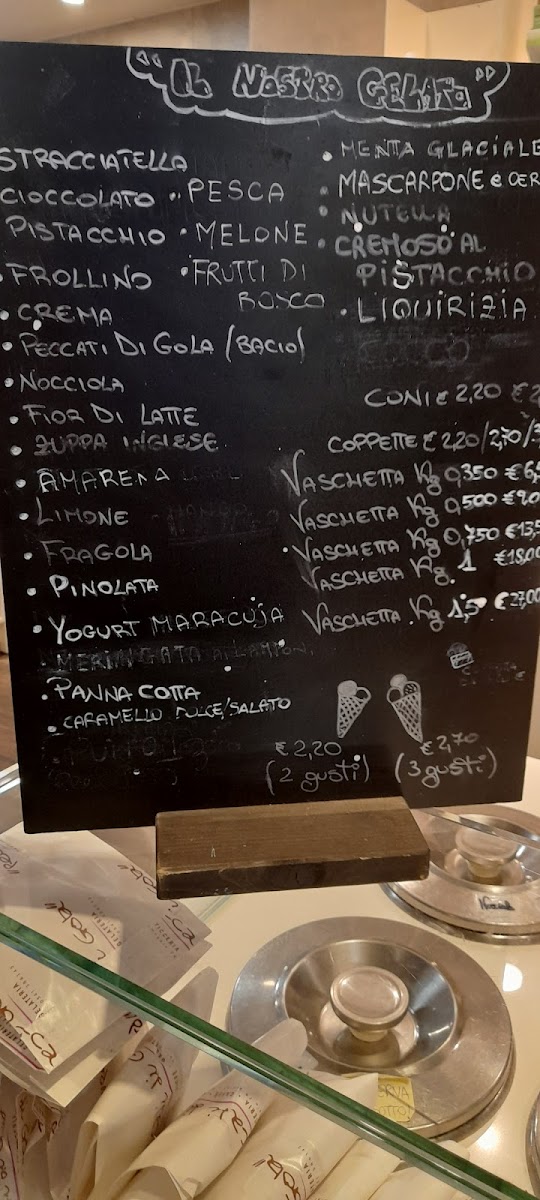 "IL NOSTRO GELATO"
STRACCIATELLA
CIOCCOLATO
PISTACCHIO
• FROLLINO
• CREMA
• PECCATI DI GOLA (BACIO)
• NOCCIOLA
• FIOR DI LATTE
• ZUPPA INGLESE
• AMARENA
• LIMONE
• FRAGOLA
• PINOLATA
• YOGURT MARACUJA
• MERINGATA
• PANNA COTTA
• CARAMELLO DOLCE/SALATO
• PESCA
• MELONE
• FRUTTI DI
BOSCO
• MENTA GLACIALE
• MASCARPONE e
• NUTELLA
• CREMOSO AL
PISTACCHIO
• LIQUIRIZIA
COCCO
CONI € 2,20 €
COPPETTE € 2,20/2,70/3
VASCHETTA Kg 0,350 € 6,
VASCHETTA Kg 0,500 € 9,0
• VASCHETTA Kg 0,750 € 13,5
VASCHETTA Kg. 1 € 18,00
VASCHETTA Kg 1,5 € 27,00
€ 2,20
(2 gusti)
€ 2,70
(3 gusti)
GELATERIA